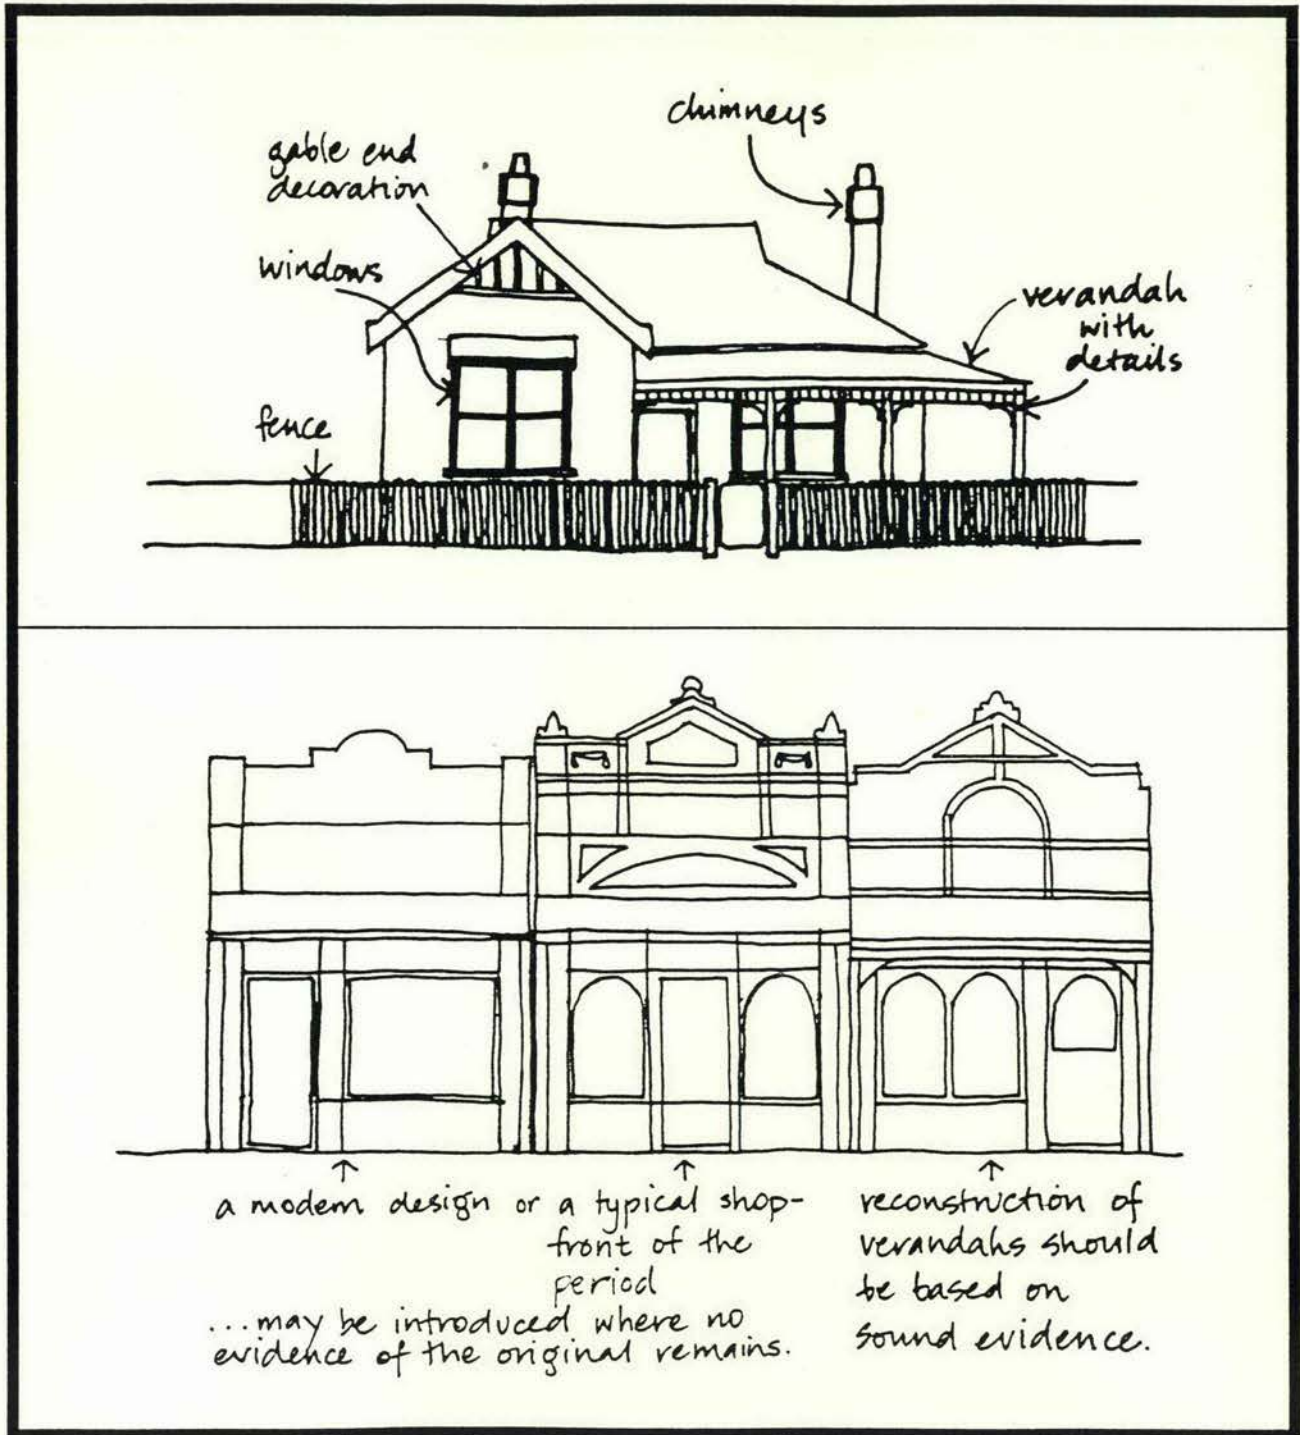 chimneys
gable end
decoration
windows
verandah
with
details
fence
a modern design or a typical shop-
front of the
period
...may be introduced where no
evidence of the original remains.
reconstruction of
verandahs should
be based on
sound evidence.